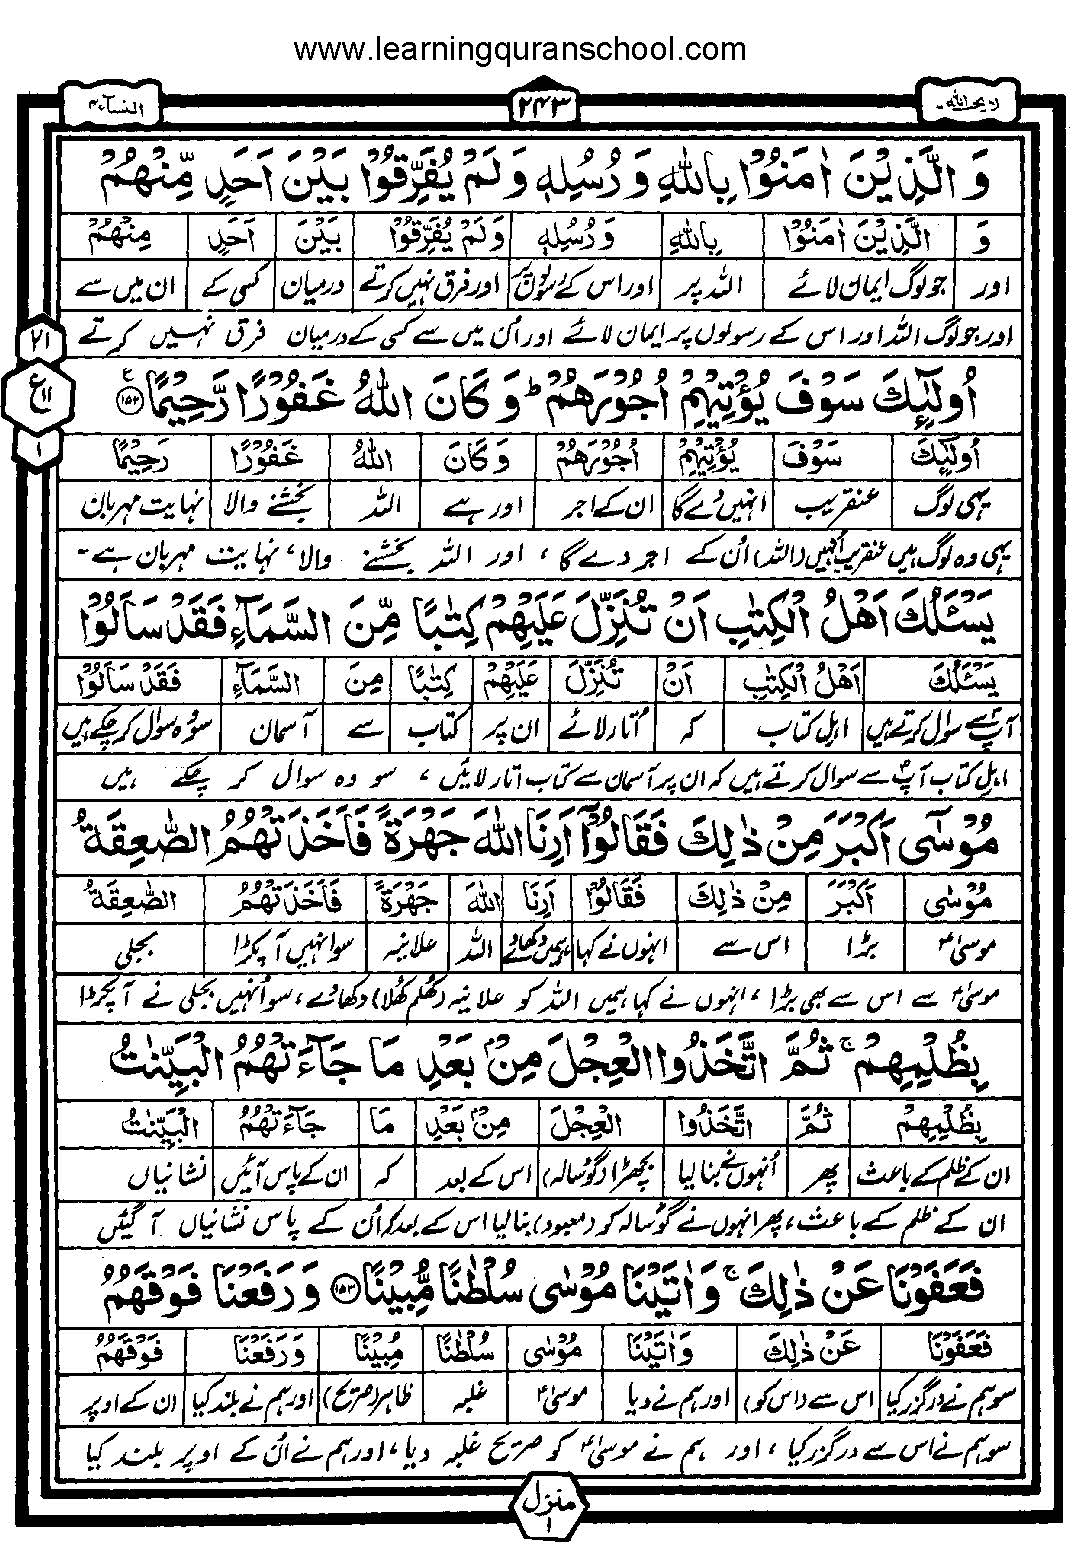 www.learningquranschool.com
النسآء ۴
۲۴۳
لا یحب اللہ ۶
وَ الَّذِیْنَ اٰمَنُوْا بِاللّٰهِ وَ رُسُلِهٖ وَ لَمْ یُفَرِّقُوْا بَیْنَ اَحَدٍ مِّنْهُمْ
وَ الَّذِیْنَ اٰمَنُوْا بِاللّٰهِ وَ رُسُلِهٖ وَ لَمْ یُفَرِّقُوْا بَیْنَ اَحَدٍ مِنْهُمْ
اور جو لوگ ایمان لائے اللہ پر اور اس کے رسولوں پر اور فرق نہیں کرتے درمیان کسی کے ان میں سے
اور جو لوگ اللہ اور اس کے رسولوں پر ایمان لائے اور اُن میں سے کسی کے درمیان فرق نہیں کرتے
۲۱
اُولٰٓئِكَ سَوْفَ یُؤْتِیْهِمْ اُجُوْرَهُمْ ؕ وَ كَانَ اللّٰهُ غَفُوْرًا رَّحِیْمًا ۝۱۵۲
ع ۱۱
۱
اُولٰٓئِكَ سَوْفَ یُؤْتِیْهِمْ اُجُوْرَهُمْ وَ كَانَ اللّٰهُ غَفُوْرًا رَحِیْمًا
یہی لوگ عنقریب انہیں دے گا ان کے اجر اور ہے اللہ بخشنے والا نہایت مہربان
یہی وہ لوگ ہیں عنقریب اُنہیں (اللہ) اُن کے اجر دے گا، اور اللہ بخشنے والا، نہایت مہربان ہے۔
یَسْـَٔلُكَ اَهْلُ الْكِتٰبِ اَنْ تُنَزِّلَ عَلَیْهِمْ كِتٰبًا مِّنَ السَّمَآءِ فَقَدْ سَاَلُوْا
یَسْـَٔلُكَ اَهْلُ الْكِتٰبِ اَنْ تُنَزِّلَ عَلَیْهِمْ كِتٰبًا مِنَ السَّمَآءِ فَقَدْ سَاَلُوْا
آپ سے سوال کرتے ہیں اہل کتاب کہ اُتار لائے ان پر کتاب سے آسمان سو وہ سوال کر چکے ہیں
اہل کتاب آپ سے سوال کرتے ہیں کہ ان پر آسمان سے کتاب اتار لائیں، سو وہ سوال کر چکے ہیں
مُوْسٰۤی اَكْبَرَ مِنْ ذٰلِكَ فَقَالُوْۤا اَرِنَا اللّٰهَ جَهْرَةً فَاَخَذَتْهُمُ الصّٰعِقَةُ
مُوْسٰۤی اَكْبَرَ مِنْ ذٰلِكَ فَقَالُوْۤا اَرِنَا اللّٰهَ جَهْرَةً فَاَخَذَتْهُمُ الصّٰعِقَةُ
موسیٰؑ بڑا اس سے انہوں نے کہا ہمیں دکھادے اللہ علانیہ سو انہیں آ پکڑا بجلی
موسیٰؑ سے اس سے بھی بڑا، انہوں نے کہا ہمیں اللہ کو علانیہ (کھلم کھلا) دکھا دے، سو اُنہیں بجلی نے آ پکڑا
بِظُلْمِهِمْ ۚ ثُمَّ اتَّخَذُوا الْعِجْلَ مِنْۢ بَعْدِ مَا جَآءَتْهُمُ الْبَیِّنٰتُ
بِظُلْمِهِمْ ثُمَّ اتَّخَذُوا الْعِجْلَ مِنْۢ بَعْدِ مَا جَآءَتْهُمُ الْبَیِّنٰتُ
ان کے ظلم کے باعث پھر اُنہوں نے بنا لیا بچھڑا (گوسالہ) اس کے بعد کہ ان کے پاس آئیں نشانیاں
ان کے ظلم کے باعث، پھر انہوں نے گوسالہ کو (معبود) بنا لیا اس کے بعد کہ اُن کے پاس نشانیاں آ گئیں
فَعَفَوْنَا عَنْ ذٰلِكَ ۚ وَ اٰتَیْنَا مُوْسٰی سُلْطٰنًا مُّبِیْنًا ۝۱۵۳ وَ رَفَعْنَا فَوْقَهُمُ
فَعَفَوْنَا عَنْ ذٰلِكَ وَ اٰتَیْنَا مُوْسٰی سُلْطٰنًا مُبِیْنًا وَ رَفَعْنَا فَوْقَهُمُ
سو ہم نے درگزر کیا اس سے (اس کو) اور ہم نے دیا موسیٰؑ غلبہ ظاہر (صریح) اور ہم نے بلند کیا ان کے اوپر
سو ہم نے اس سے درگزر کیا، اور ہم نے موسیٰؑ کو صریح غلبہ دیا، اور ہم نے اُن کے اوپر بلند کیا
منزل ۱